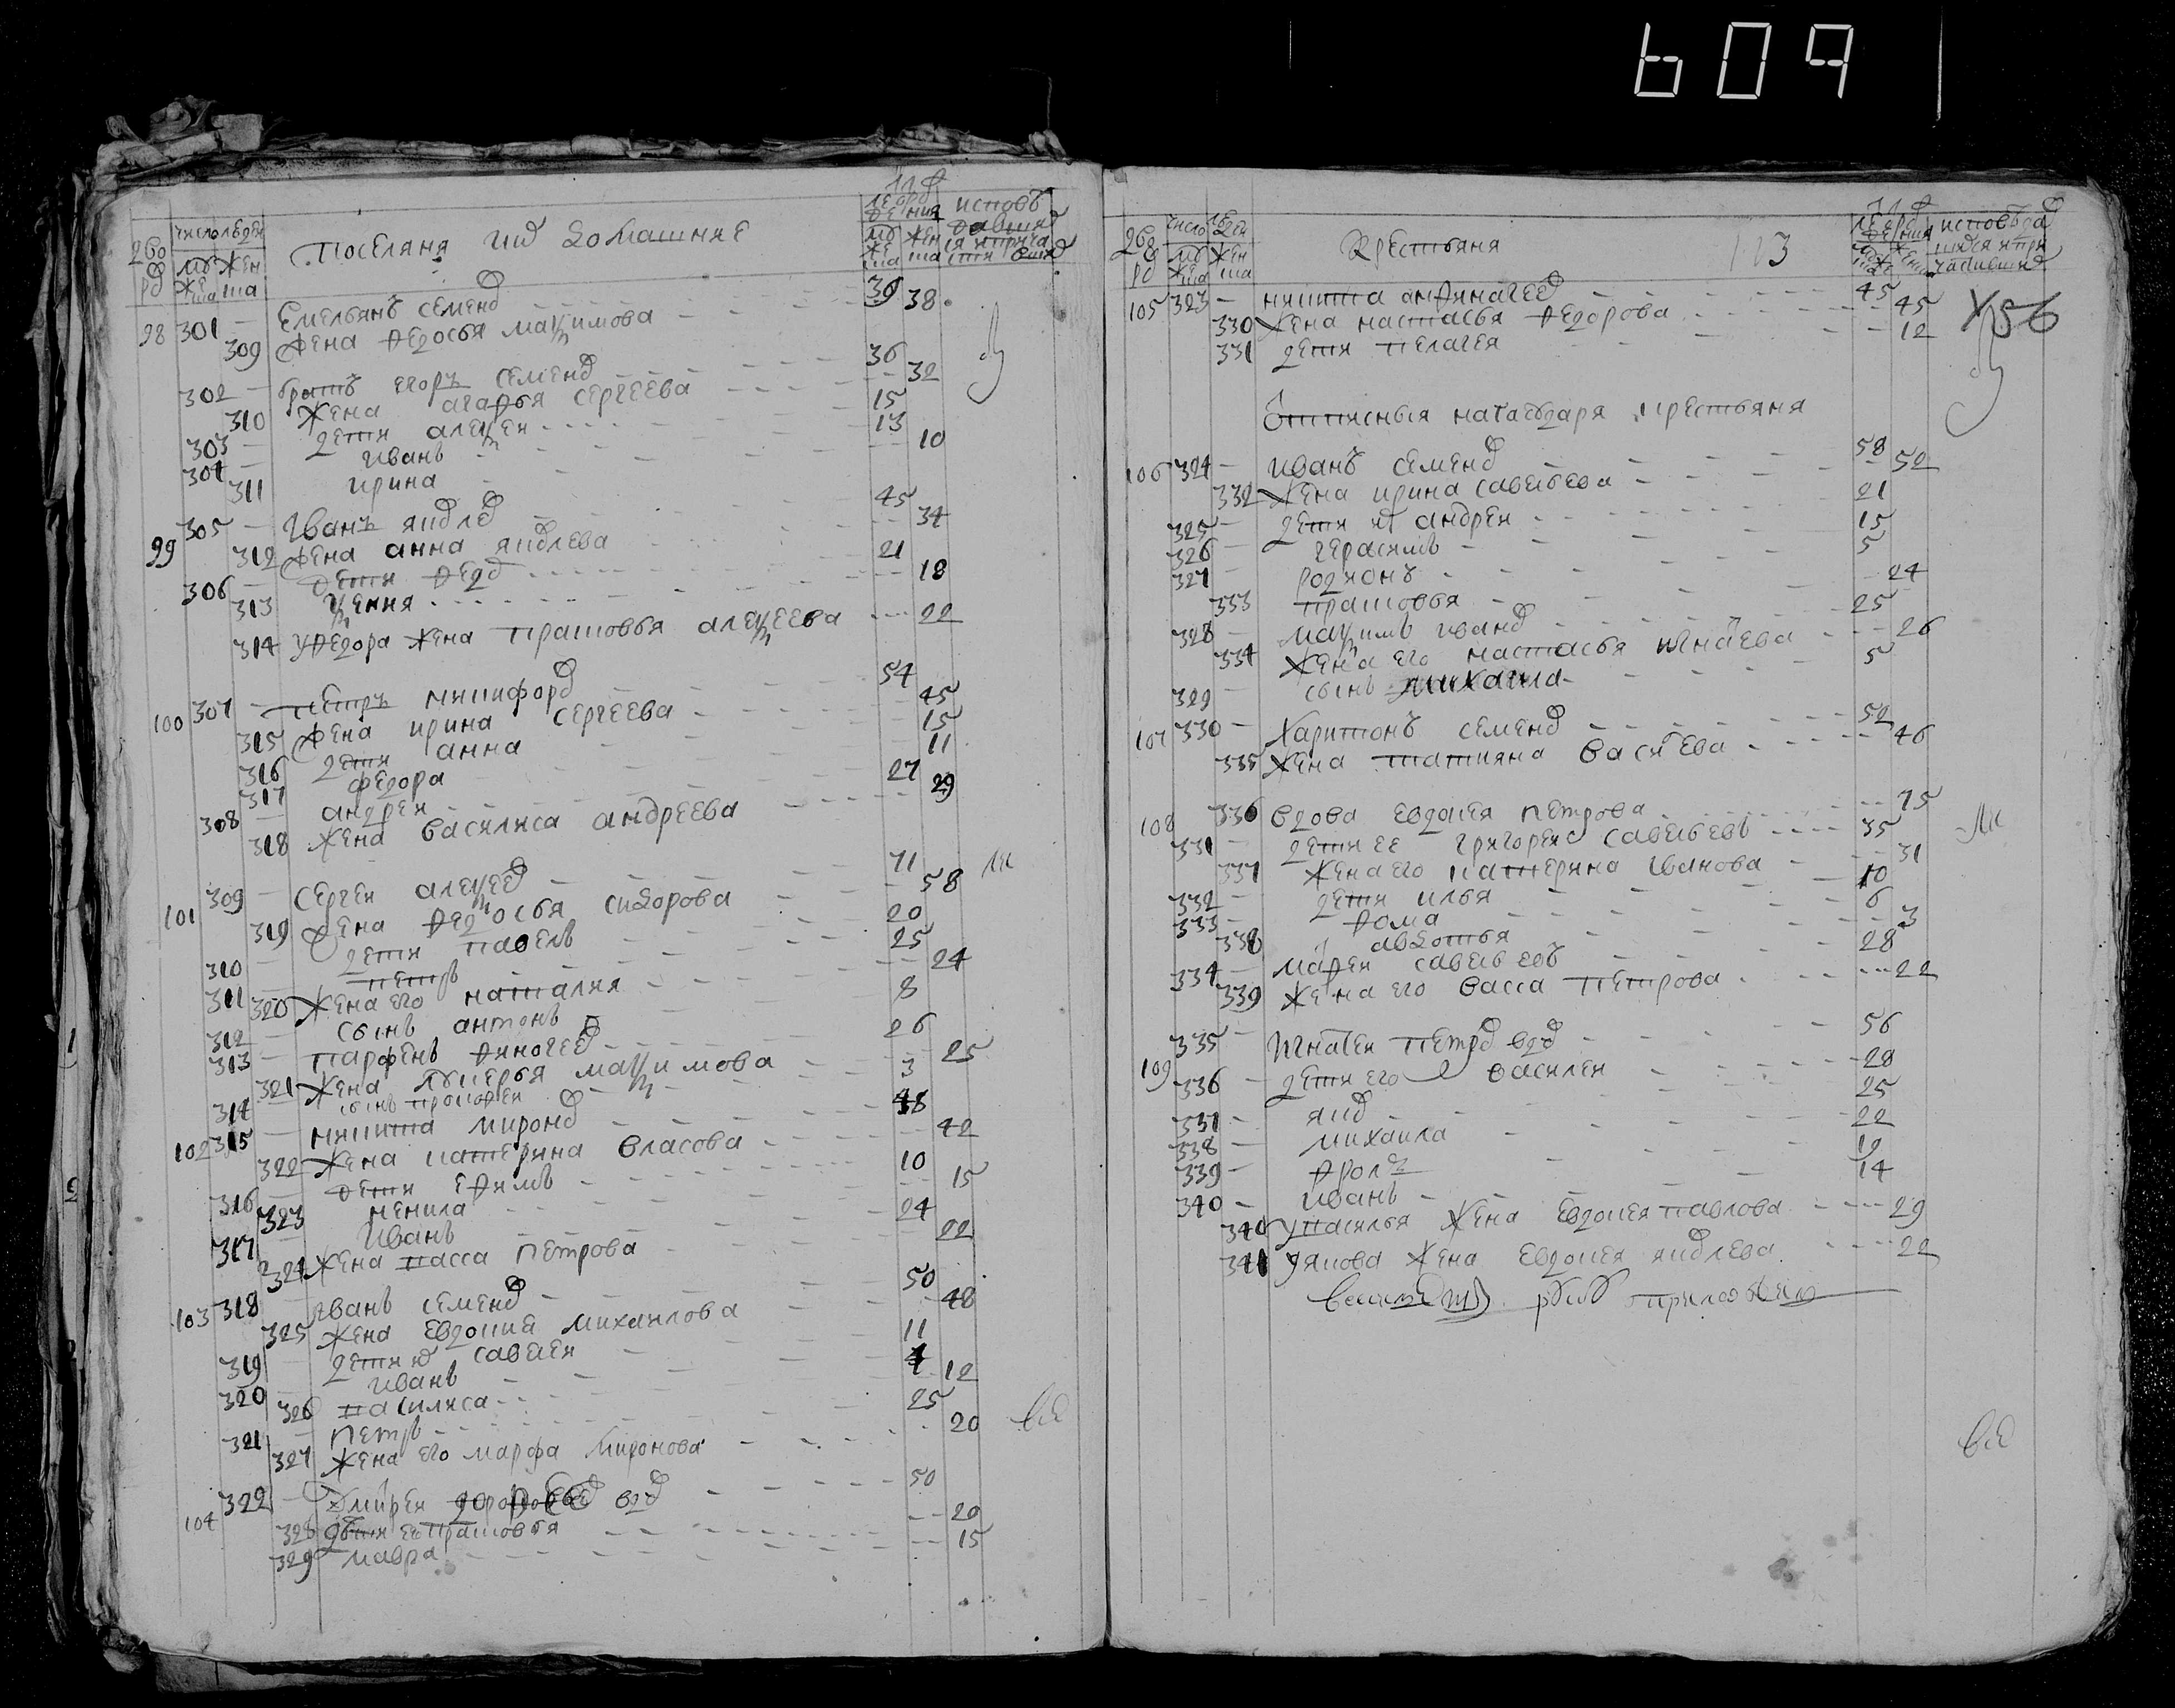 609
дво ро
число леде
му же ска
жен ска
поселяня их домашние
лет рожде ния
му же ска
жен ска
исповедавшихся и причастившихся
98 301 — Емельянъ семено 39
309 жена федосья маѯимова 38
302 — братъ егоръ семено 36
310 жена агафья сергеева 32
303 — дети алеѯеи 15
304 — иванъ 13
311 ирина 10
99 305 — иванъ яковле 45
312 жена анна яковлева 34
306 — дети федо 21
313 ѯения 18
314 у федора жена прасковья алеѯеева 22
100 307 — петръ никифоро 54
315 жена ирина сергеева 45
316 дети анна 15
317 федора 11
308 — андреи 27
318 жена василиса андреева 29
101 309 — сергеи алеѯее 71
319 жена федосья сидорова 58
310 — дети павелъ 20
311 — петръ 25
320 жена его наталия 24
312 — сынъ антонъ 8
313 — парфенъ 26
321 жена маѯимова 25
314 сынъ 3
102 315 — никита мироно 48
322 жена катерина власова 42
316 — дети ефимъ 10
323 ненила 15
317 — иванъ 24
324 жена васса петрова 22
103 318 — иванъ семено 50
325 жена евдокия михаилова 48
319 — дети их савелеи 11
320 — иванъ 4
326 василиса 12
321 — петръ 25
327 жена его марфа миронова 20
104 322 — вдо 50
328 дети ево прасковья 20
329 мавра 15
дво ро
число леде
му же ска
жен ска
крестьяня
113
лет рожде ния
105 323 — никита 45
330 жена настасья федорова 45
331 дети пелагея 12
х56
отписныя на государя крестьяня
106 324 — иванъ семено 58
332 жена ирина савельева 52
325 — дети их андреи 21
326 — герасимъ 15
327 — родионъ 5
333 прасковья 24
328 — маѯимъ ивано 25
334 жена его настасья игнатева 26
329 — сынъ михаила 5
107 330 — харитонъ семено 52
335 жена татияна василева 46
108 336 вдова евдокея петрова 75
331 — дети ее григореи савельевъ 35
337 жена его катерина иванова 31
332 — дети илья 10
333 — фома 6
338 авдотья 3
334 — савельевъ 28
339 жена его васса петрова 22
109 335 — игнатеи петро вдо 56
336 — дети его василеи 28
337 — яко 25
338 — михаила 22
339 — фролъ 19
340 — иванъ 14
340 у василья жена евдокея павлова 29
341 у якова жена евдокея яковлева 22